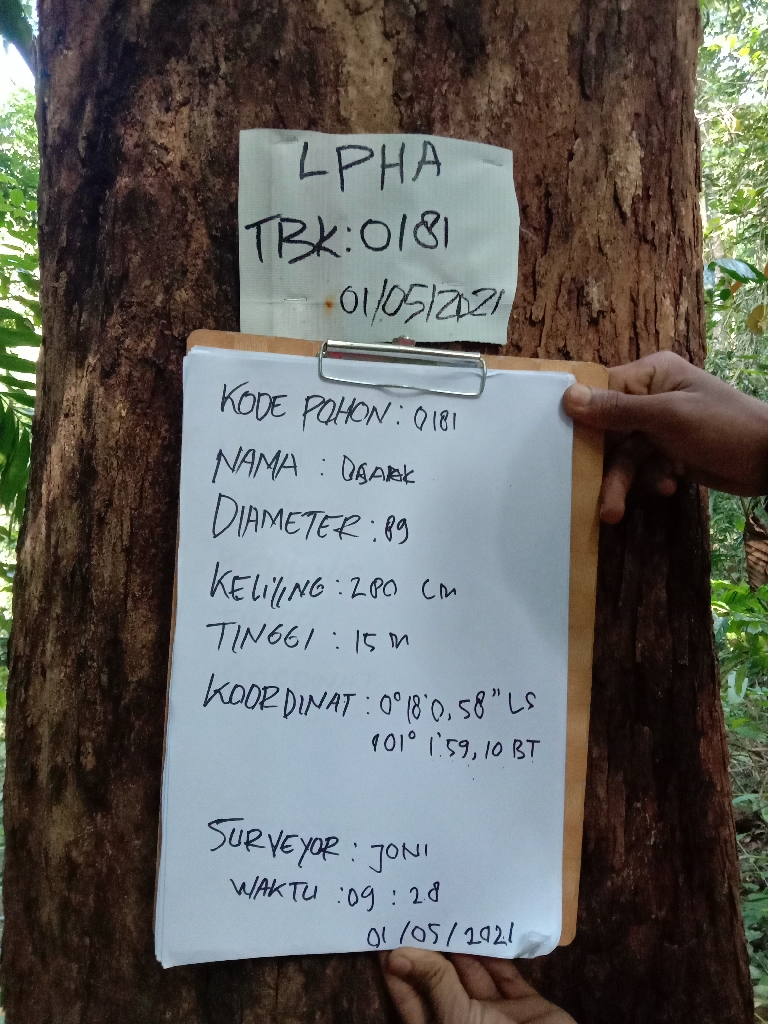 LPHA
TBK:0181
01/05/2021
KODE POHON: 0181
NAMA :
DIAMETER: 89
KELILING: 280 cm
TINGGI : 15 m
KOORDINAT: 0° 18' 0,58" LS
101° 1' 59,10 BT
SURVEYOR: JONI
WAKTU : 09 : 28
01/05/2021